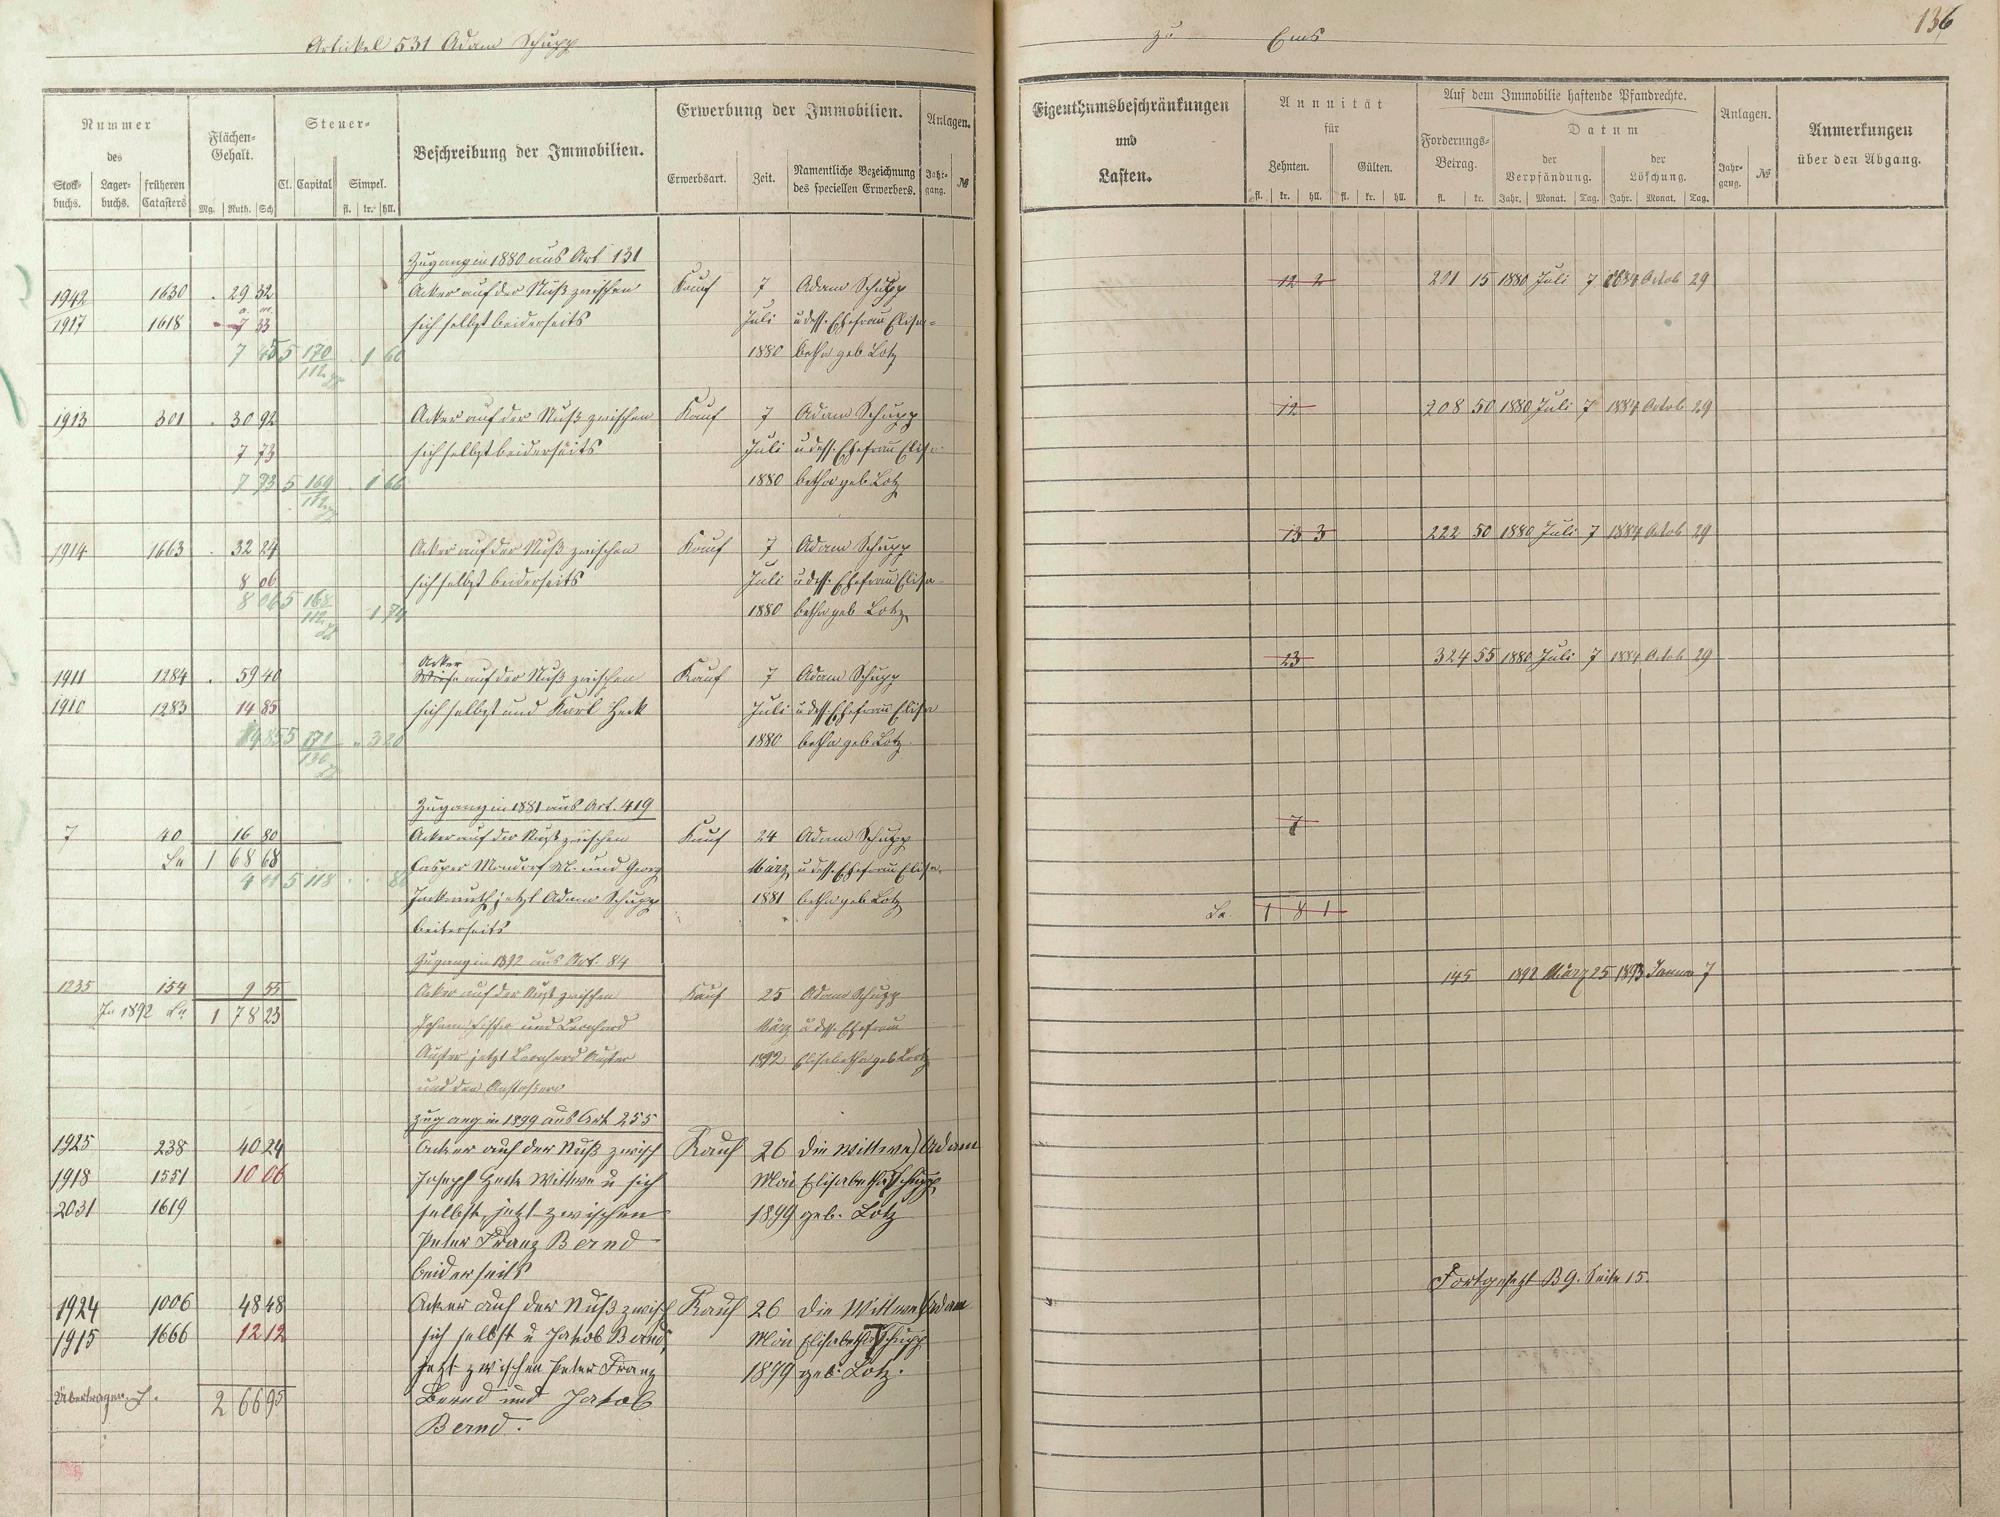 Artikel 531 Adam Schupp
zu Ems
136
Nummer des
Stockbuchs. Lagerbuchs. früheren Catasters
Flächen-Gehalt.
Mg. Ruth. Sch
Steuer-
Cl. Capital Simpel.
fl. kr. hll.
Beschreibung der Immobilien.
Erwerbung der Immobilien.
Erwerbsart. Zeit. Namentliche Bezeichnung des speciellen Erwerbers.
Anlagen.
Jahrgang. №
Eigenthumsbeschränkungen
und
Lasten.
Annuität
für
Zehnten. Gülten.
fl. kr. hll. fl. kr. hll.
Auf dem Immobilie haftende Pfandrechte.
Forderungs-Betrag. Datum
der Verpfändung. der Löschung.
fl. kr. Jahr. Monat. Tag. Jahr. Monat. Tag.
Anlagen.
Jahrgang. №
Anmerkungen
über den Abgang.
Zugang in 1880 aus Art 131
1942 1630 . 29 32 Acker auf der Nuß zwischen Kauf 7 Adam Schupp 12 2 201 15 1880 Juli 7 1884 Octob 29
1917 1618 7 33 sich selbst beiderseits Juli u dess. Ehefrau Elisa-
7 45 5 170 1 60 1880 betha geb Lotz
112
1913 301 . 30 92 Acker auf der Nuß zwischen Kauf 7 Adam Schupp 12 208 50 1880 Juli 7 1884 Octob 29
7 73 sich selbst beiderseits Juli u dess. Ehefrau Elisa-
7 73 5 169 1 66 1880 betha geb Lotz
112
1914 1663 . 32 24 Acker auf der Nuß zwischen Kauf 7 Adam Schupp 13 3 222 50 1880 Juli 7 1884 Octob 29
8 06 sich selbst beiderseits Juli u dess. Ehefrau Elisa-
8 06 5 168 1 74 1880 betha geb Lotz
112
Acker
1911 1284 . 59 40 Wiese auf der Nuß zwischen Kauf 7 Adam Schupp 23 324 55 1880 Juli 7 1884 Octob 29
1910 1283 14 85 sich selbst und Karl Heck Juli u dess. Ehefrau Elisa
14 85 5 171 3 20 1880 betha geb Lotz
136
Zugang in 1881 aus Art. 419
7 40 16 80 Acker auf der Nuß zwischen Kauf 24 Adam Schupp 7
Sa 1 68 68 Casper Mondorf Wl. und Georg März u dess. Ehefrau Elisa-
5 118 jetzt Adam Schupp 1881 betha geb Lotz Sa. 1 8 1
beiderseits
Zugang in 1892 aus Art. 84
1235 154 9 55 Acker auf der Nuß zwischen Kauf 25 Adam Schupp 145 1892 März 25 1893 Januar 7
In 1892 Sa 1 78 23 Johann Fischer und Leonhard März u dess Ehefrau
jetzt Leonhard 1892 Elisabetha geb Lotz
und den Anstoßern
Zugang in 1899 aus Art 255
1925 238 40 24 Acker auf der Nuß zwisch Kauf 26 die Wittwe Adam
1918 1551 10 06 Joseph Heck Wittwe u sich Mai Elisabetha Schupp
2031 1619 selbst, jetzt zwischen 1899 geb. Lotz
Peter Franz Bernd
beiderseits
1924 1006 48 48 Acker auf der Nuß zwisch Kauf 26 die Wittwe Adam
1915 1666 12 12 sich selbst u Jakob Bernd, Mai Elisabetha Schupp
jetzt zwischen Peter Franz 1899 geb. Lotz.
Übertragen 2 66 95 Bernd und Jakob
Bernd.
Fortgesetzt B 9. Seite 15.